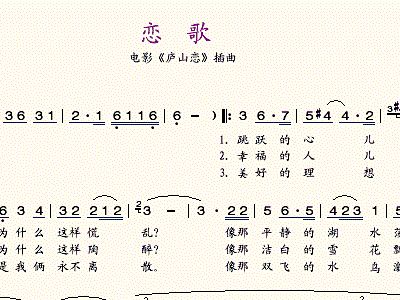 恋 歌
电影《庐山恋》插曲
36 31 | 2·1 6116 | 6 - ) ‖: 3 6·7 | 5#4 4·2 | 3
1. 跳 跃 的 心 儿
2. 幸 福 的 人 儿
3. 美 好 的 理 想
6 3 4 | 32 212 | 3 - | 3· 22 | 55 6·5 | 423 1 | 5
为 什 么 这样 慌 乱? 像那 平 静 的 湖 水 荡
为 什 么 这样 陶 醉? 像那 洁 白 的 雪 花 飘
是 我 俩 永不 离 散。 像那 双 飞 的 水 鸟